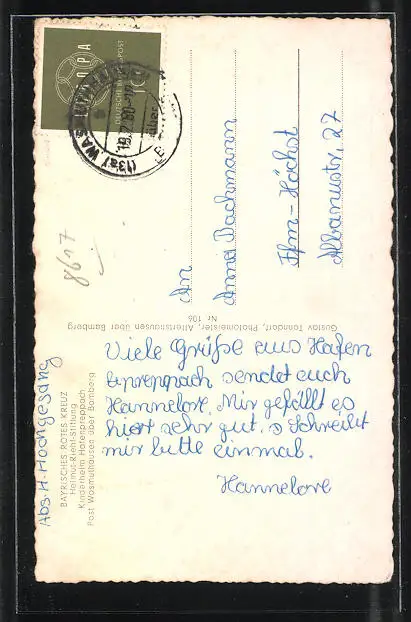 EUROPA
DEUTSCHE BUNDESPOST
10
(13a) WAS
18.7.60-10
über
8617
An
Anna Bachmann
Ffm-Höchst
Albanusstr, 27
Gustav Tonndorf, Photomeister, Altertshausen über Bamberg
Nr 106
Abs. H. Hochgesang
BAYRISCHES ROTES KREUZ
Helmut-Riehl-Stiftung
Kinderheim Hafenpreppach
Post Wasmuthausen über Bamberg
Viele Grüße aus Hafen
enreppach sendet euch
Hannelore. Mir gefällt es
hier sehr gut. Schreibt
mir bitte einmal.
Hannelore